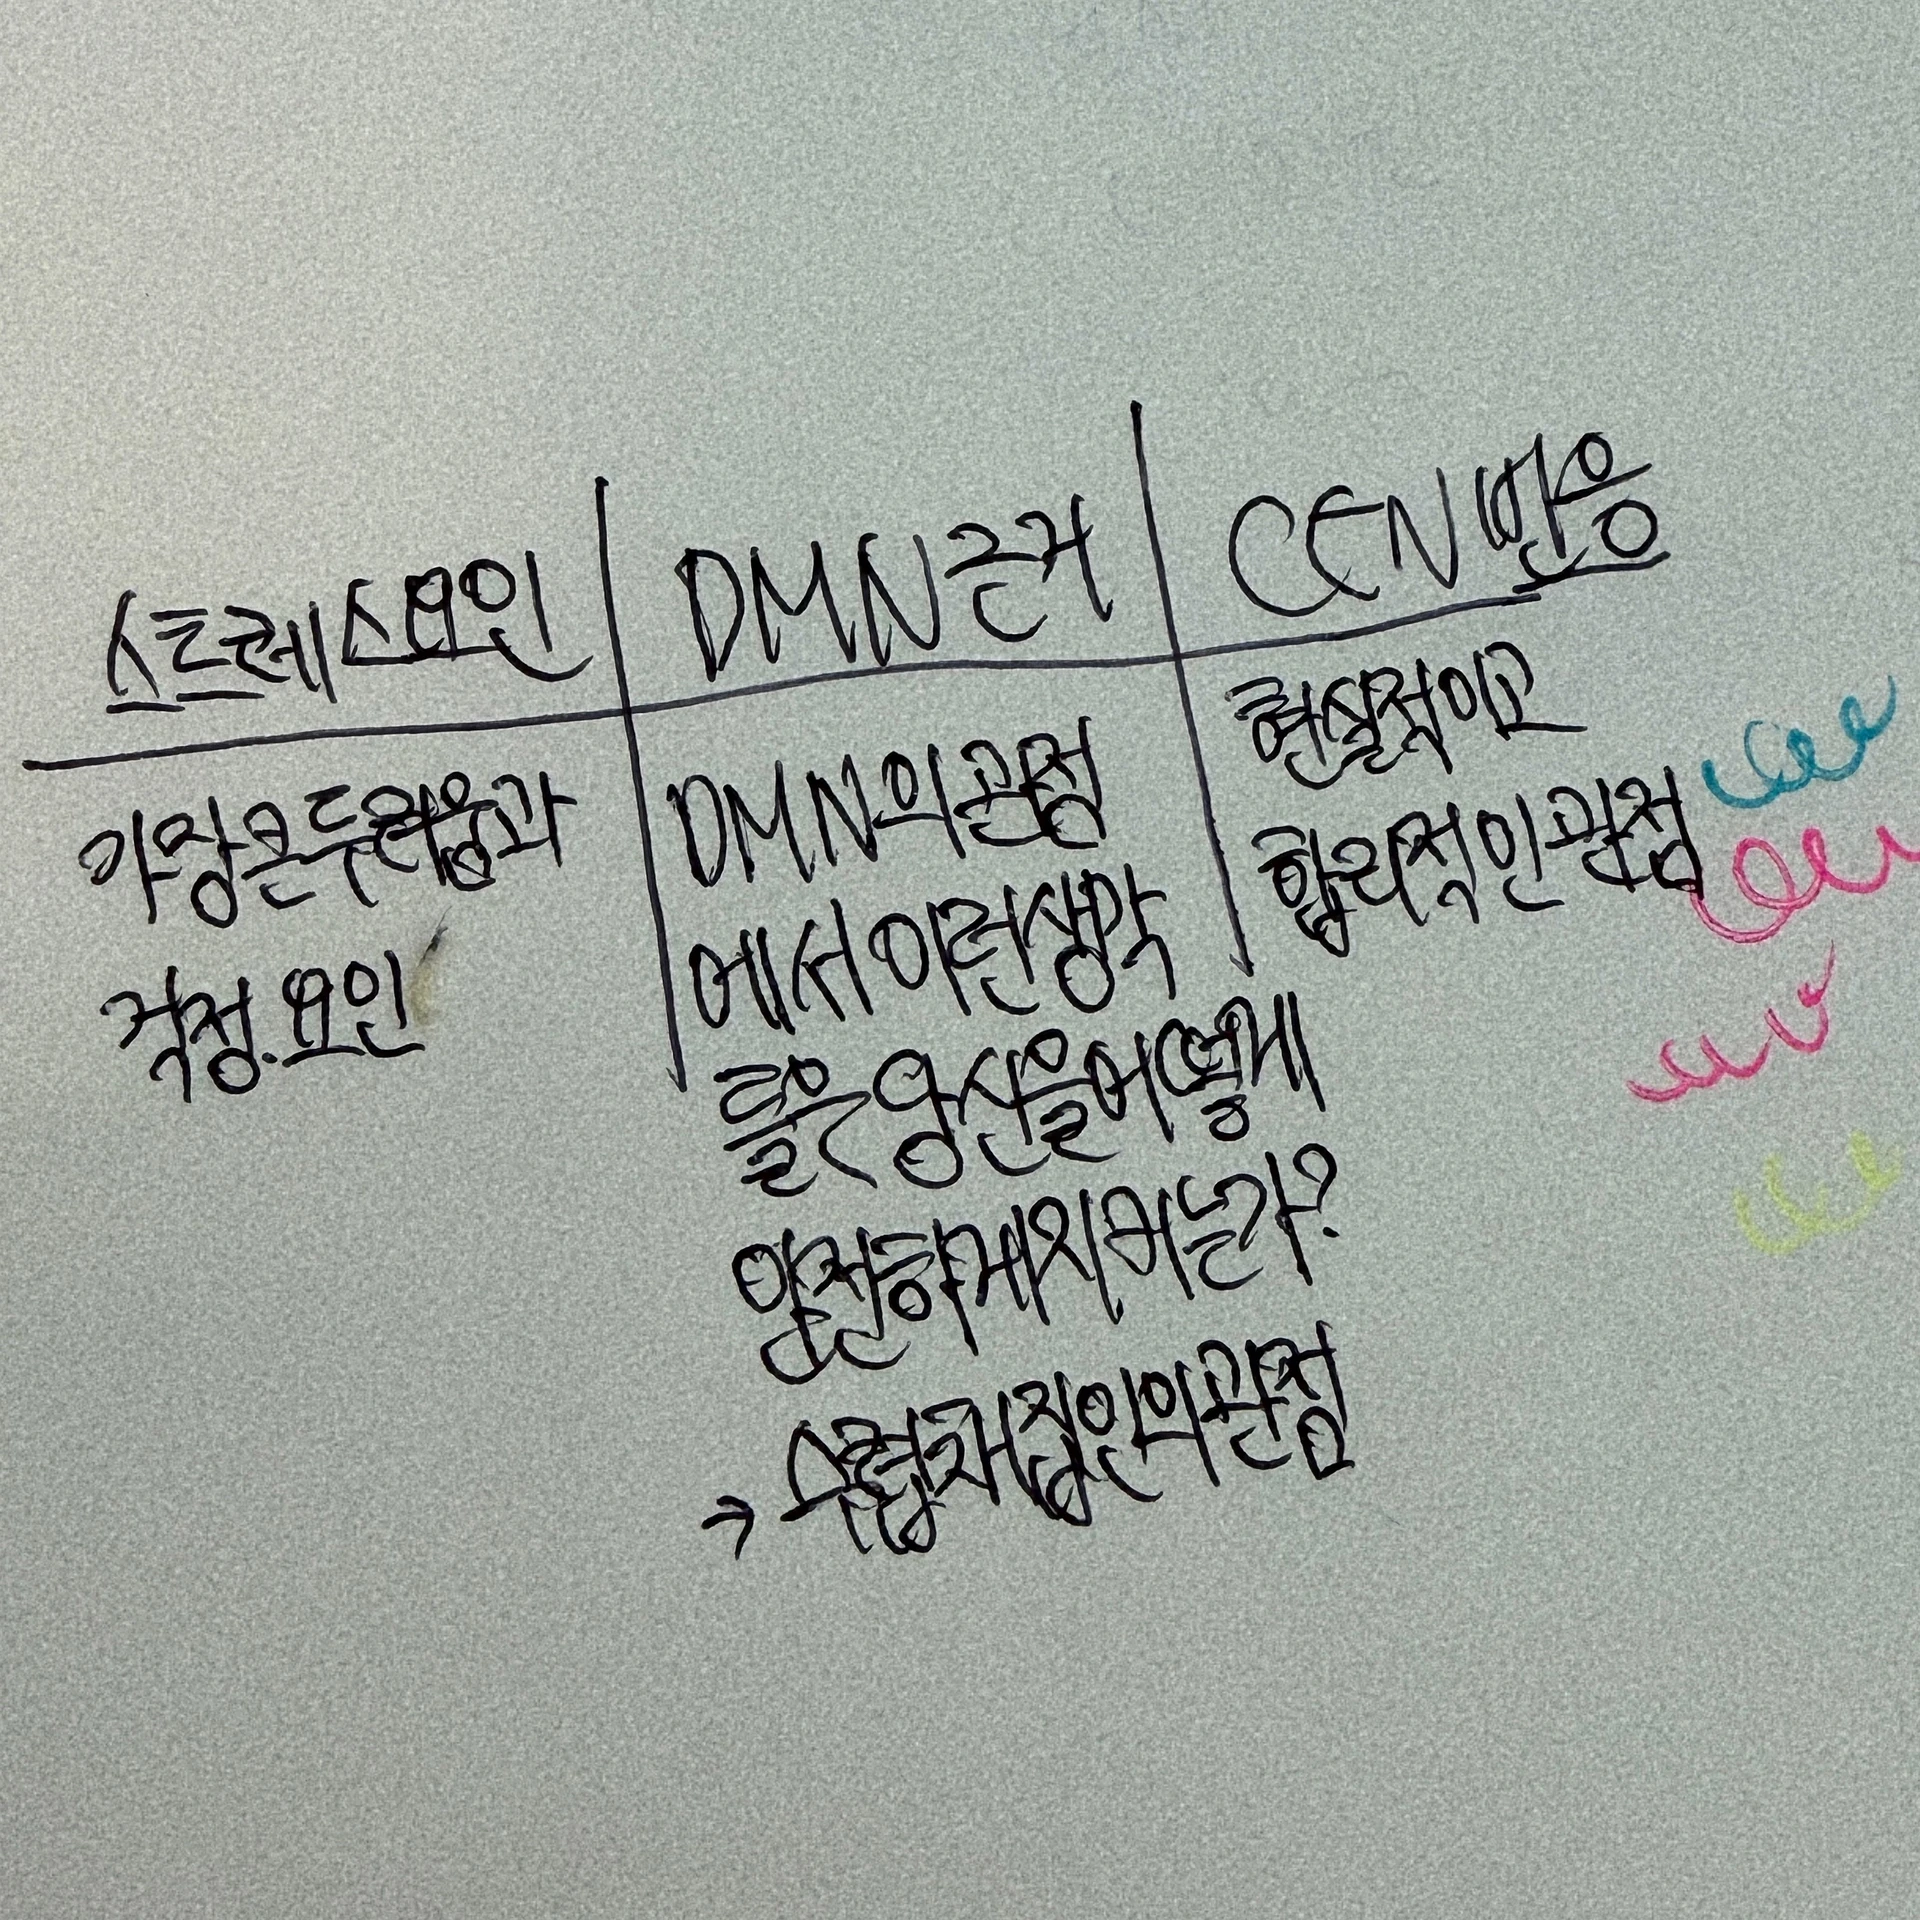 스트레스요인
DMN근거
CEN반응
가장큰두려움과
걱정.요인
DMN의관점
에서이런생각
들은당신을어떻게
안전하게지키는가?
→수렵채집인의관점
현실적이고
합리적인관점